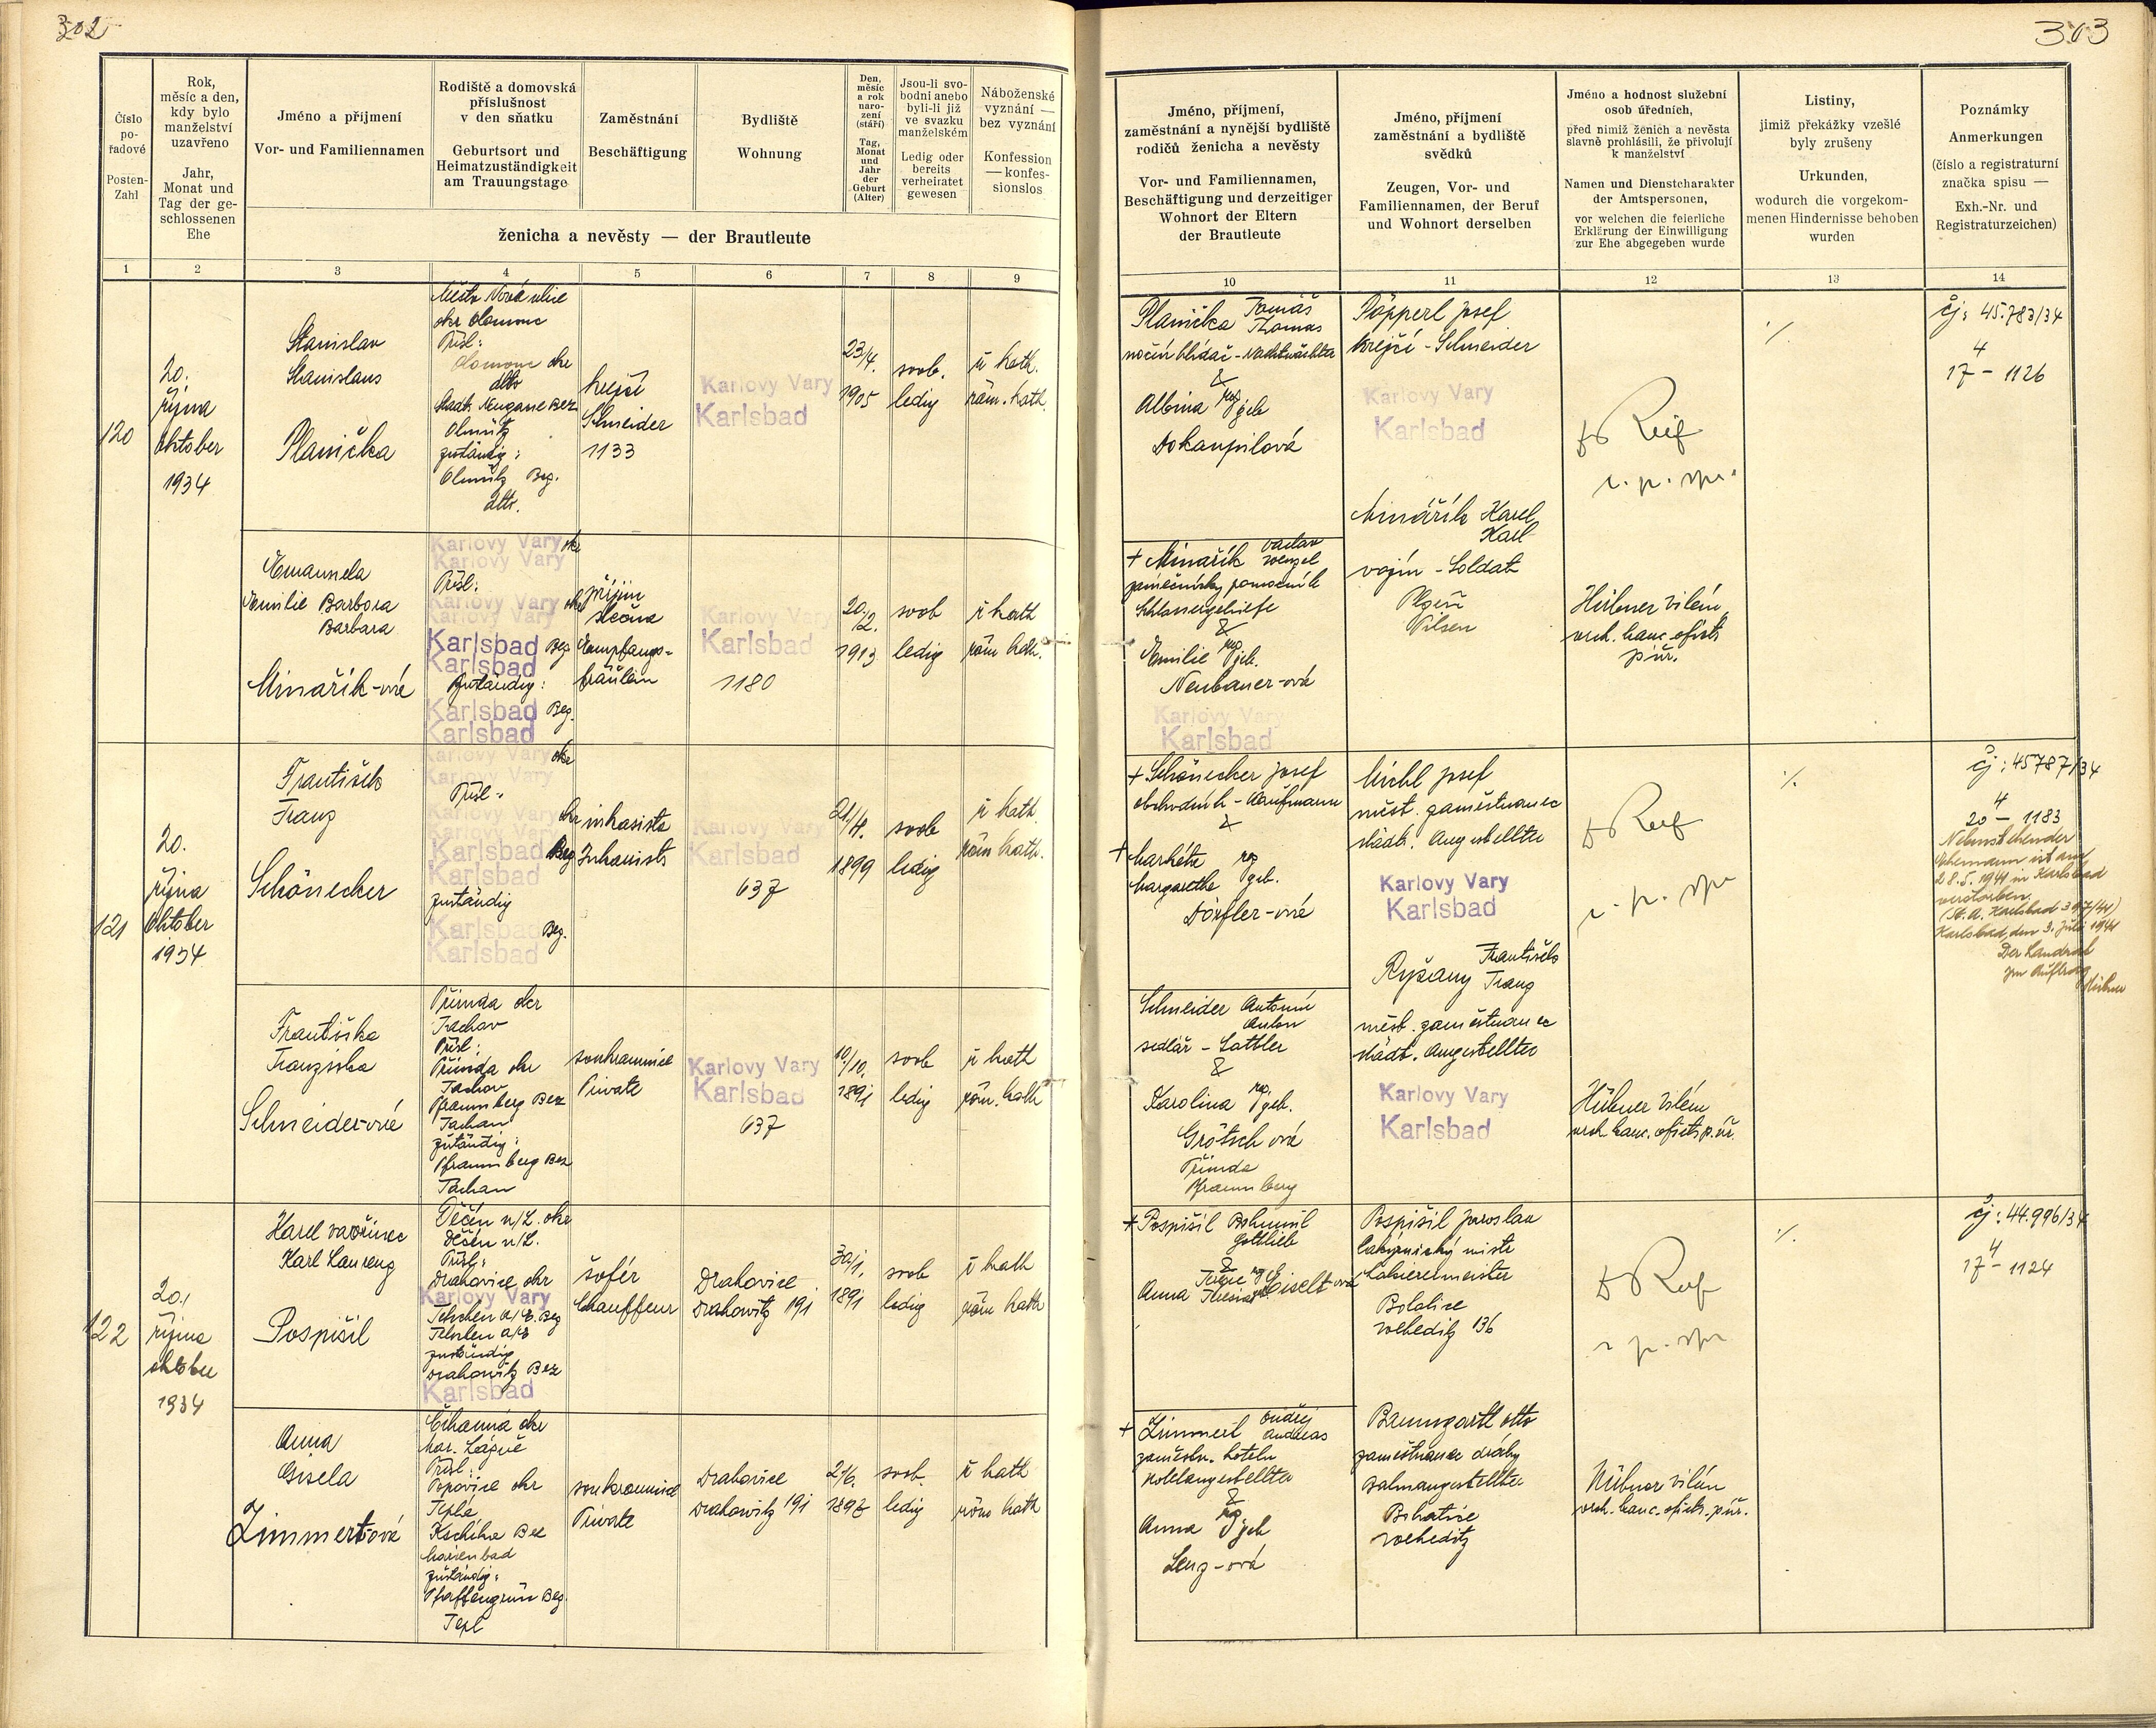 302
Číslo po-řadové
Posten-Zahl
Rok, měsíc a den, kdy bylo manželství uzavřeno
Jahr, Monat und Tag der ge-schlossenen Ehe
Jméno a příjmení
Vor- und Familiennamen
Rodiště a domovská příslušnost v den sňatku
Geburtsort und Heimatzuständigkeit am Trauungstage
Zaměstnání
Beschäftigung
Bydliště
Wohnung
Den, měsíc a rok naro-zení (stáří)
Tag, Monat und Jahr der Geburt (Alter)
Jsou-li svo-bodni anebo byli-li již ve svazku manželském
Ledig oder bereits verheiratet gewesen
Náboženské vyznání — bez vyznání
Konfession — konfes-sionslos
ženicha a nevěsty — der Brautleute
1 2 3 4 5 6 7 8 9
120
20.
října
Oktober
1934
Stanislav
Stanislaus
Planička
Město Nová ulice
okr Olomouc
Přísl:
Olomouc okr
dtto
Stadt. Neugasse Bez
Olmütz
zuständig:
Olmütz Bez.
dtto.
krejčí
Schneider
1133
Karlovy Vary
Karlsbad
23/4.
1905
svob.
ledig
ř kath.
röm. kath.
Emanuela
Emilie Barbora
Barbara
Minařík-ová
Karlovy Vary okr
Karlovy Vary
Přísl:
Karlovy Vary okr
Karlovy Vary
Karlsbad Bez
Karlsbad
Zuständig:
Karlsbad Bez.
Karlsbad
příjím
slečna
Empfangs-
fräulein
Karlovy Vary
Karlsbad
1180
20./2.
1913
svob
ledig
ř kath
röm kath.
121
20.
října
Oktober
1934
František
Franz
Schönecker
Karlovy Vary okr
Karlovy Vary
Přísl:
Karlovy Vary okr
Karlovy Vary
Karlsbad Bez
Karlsbad
zuständig
Karlsbad Bez.
Karlsbad
inkasista
Inkassist
Karlovy Vary
Karlsbad
637
21/4.
1899
svob
ledig
ř kath.
röm kath.
Františka
Franziska
Schneider-ová
Přimda okr
Tachov
Přísl:
Přimda okr
Tachov
Pfraumberg Bez
Tachau
zuständig:
Pfraumberg Bez
Tachau
soukromnice
Private
Karlovy Vary
Karlsbad
637
10/10.
1891
svob
ledig
ř kath
röm. kath
122
20.
října
oktober
1934
Karel Vavřinec
Karl Laurenz
Pospišil
Děčín n/L. okr
Děčín n/L.
Přísl:
Drahovice okr
Karlovy Vary
Tetschen a/E. Bez
Tetschen a/E
zuständig
Drahowitz Bez
Karlsbad
šofér
Chauffeur
Drahovice
Drahowitz 191
30/1.
1891
svob
ledig
ř kath
röm kath
Anna
Gisela
Zimmertová
Číhaná okr
Mar. Lázně
Přísl:
Popovice okr
Teplá
Kschiha Bez
Marienbad
zuständig:
Pfaffengrün Bez.
Tepl
soukromnice
Private
Drahovice
Drahowitz 191
2/6.
1897
svob.
ledig
ř kath
röm kath
303
Jméno, příjmení, zaměstnání a nynější bydliště rodičů ženicha a nevěsty
Vor- und Familiennamen, Beschäftigung und derzeitiger Wohnort der Eltern der Brautleute
Jméno, příjmení zaměstnání a bydliště svědků
Zeugen, Vor- und Familiennamen, der Beruf und Wohnort derselben
Jméno a hodnost služební osob úředních,
před nimiž ženich a nevěsta slavně prohlásili, že přivolují k manželství
Namen und Dienstcharakter der Amtspersonen,
vor welchen die feierliche Erklärung der Einwilligung zur Ehe abgegeben wurde
Listiny,
jimiž překážky vzešlé byly zrušeny
Urkunden,
wodurch die vorgekom-menen Hindernisse behoben wurden
Poznámky
Anmerkungen
(číslo a registraturní značka spisu —
Exh.-Nr. und Registraturzeichen)
10 11 12 13 14
Planička Tomáš
Thomas
noční hlídač - Nachtwächter
&
Albina roz geb
Dokoupilová
Pöpperl Josef
krejčí - Schneider
Karlovy Vary
Karlsbad
Minářík Karel
Karl
vojín - Soldat
Plzeň
Pilsen
·/.
čj: 45.783/34
4
17 – 1126
+ Minařík Václav
Wenzel
zámečnický pomocník
Schlossergehilfe
&
Emilie roz geb.
Neubauer-ová
Karlovy Vary
Karlsbad
Hübner Vilém
vrch. kanc. ofici.
+ Schönecker Josef
obchodník - Kaufmann
&
+ Markéta roz
Margarethe geb.
Dörfler-ová
Michl Josef
měst. zaměstnanec
städt. Angestellter
Karlovy Vary
Karlsbad
František
Franz
·/.
čj: 45787/34
4
20 – 1183
Nebenstehender
Ehemann ist am
28.5.1941 in Karlsbad
verstorben.
(St. A. Karlsbad 397/41)
Karlsbad, den 3. Juli 1941
Der Landrat
Im Auftrag
Schneider Antonín
Anton
sedlář - Sattler
&
Karolina roz. geb.
Grötsch ová
Přimda
Pfraumberg
měst. zaměstnanec
städt. Angestellter
Karlovy Vary
Karlsbad
Hübner Vilém
vrch. kanc. ofici.
+ Pospišil Bohumil
Gottlieb
&
Anna Terezie roz
Theresia geb Eiselt ová
Pospišil Jaroslav
lakýrnický mistr
Lakierermeister
136
·/.
čj: 44.996/34
4
17 – 1124
+ Zimmert Ondřej
Andreas
zaměstn. hotelu
Hotelangestellter
&
Anna roz geb
Lenz-ová
Baumgartl Otto
zaměstnanec dráhy
Bahnangestellter
Hübner Vilém
vrch. kanc. ofici.